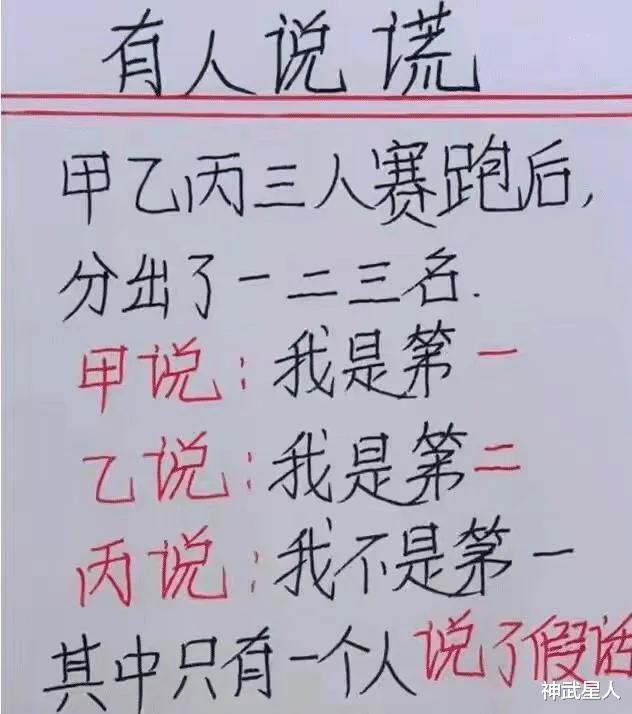 有人说谎
甲乙丙三人赛跑后,
分出了一二三名.
甲说:我是第一
乙说:我是第二
丙说:我不是第一
其中只有一个人说了假话
神武星人